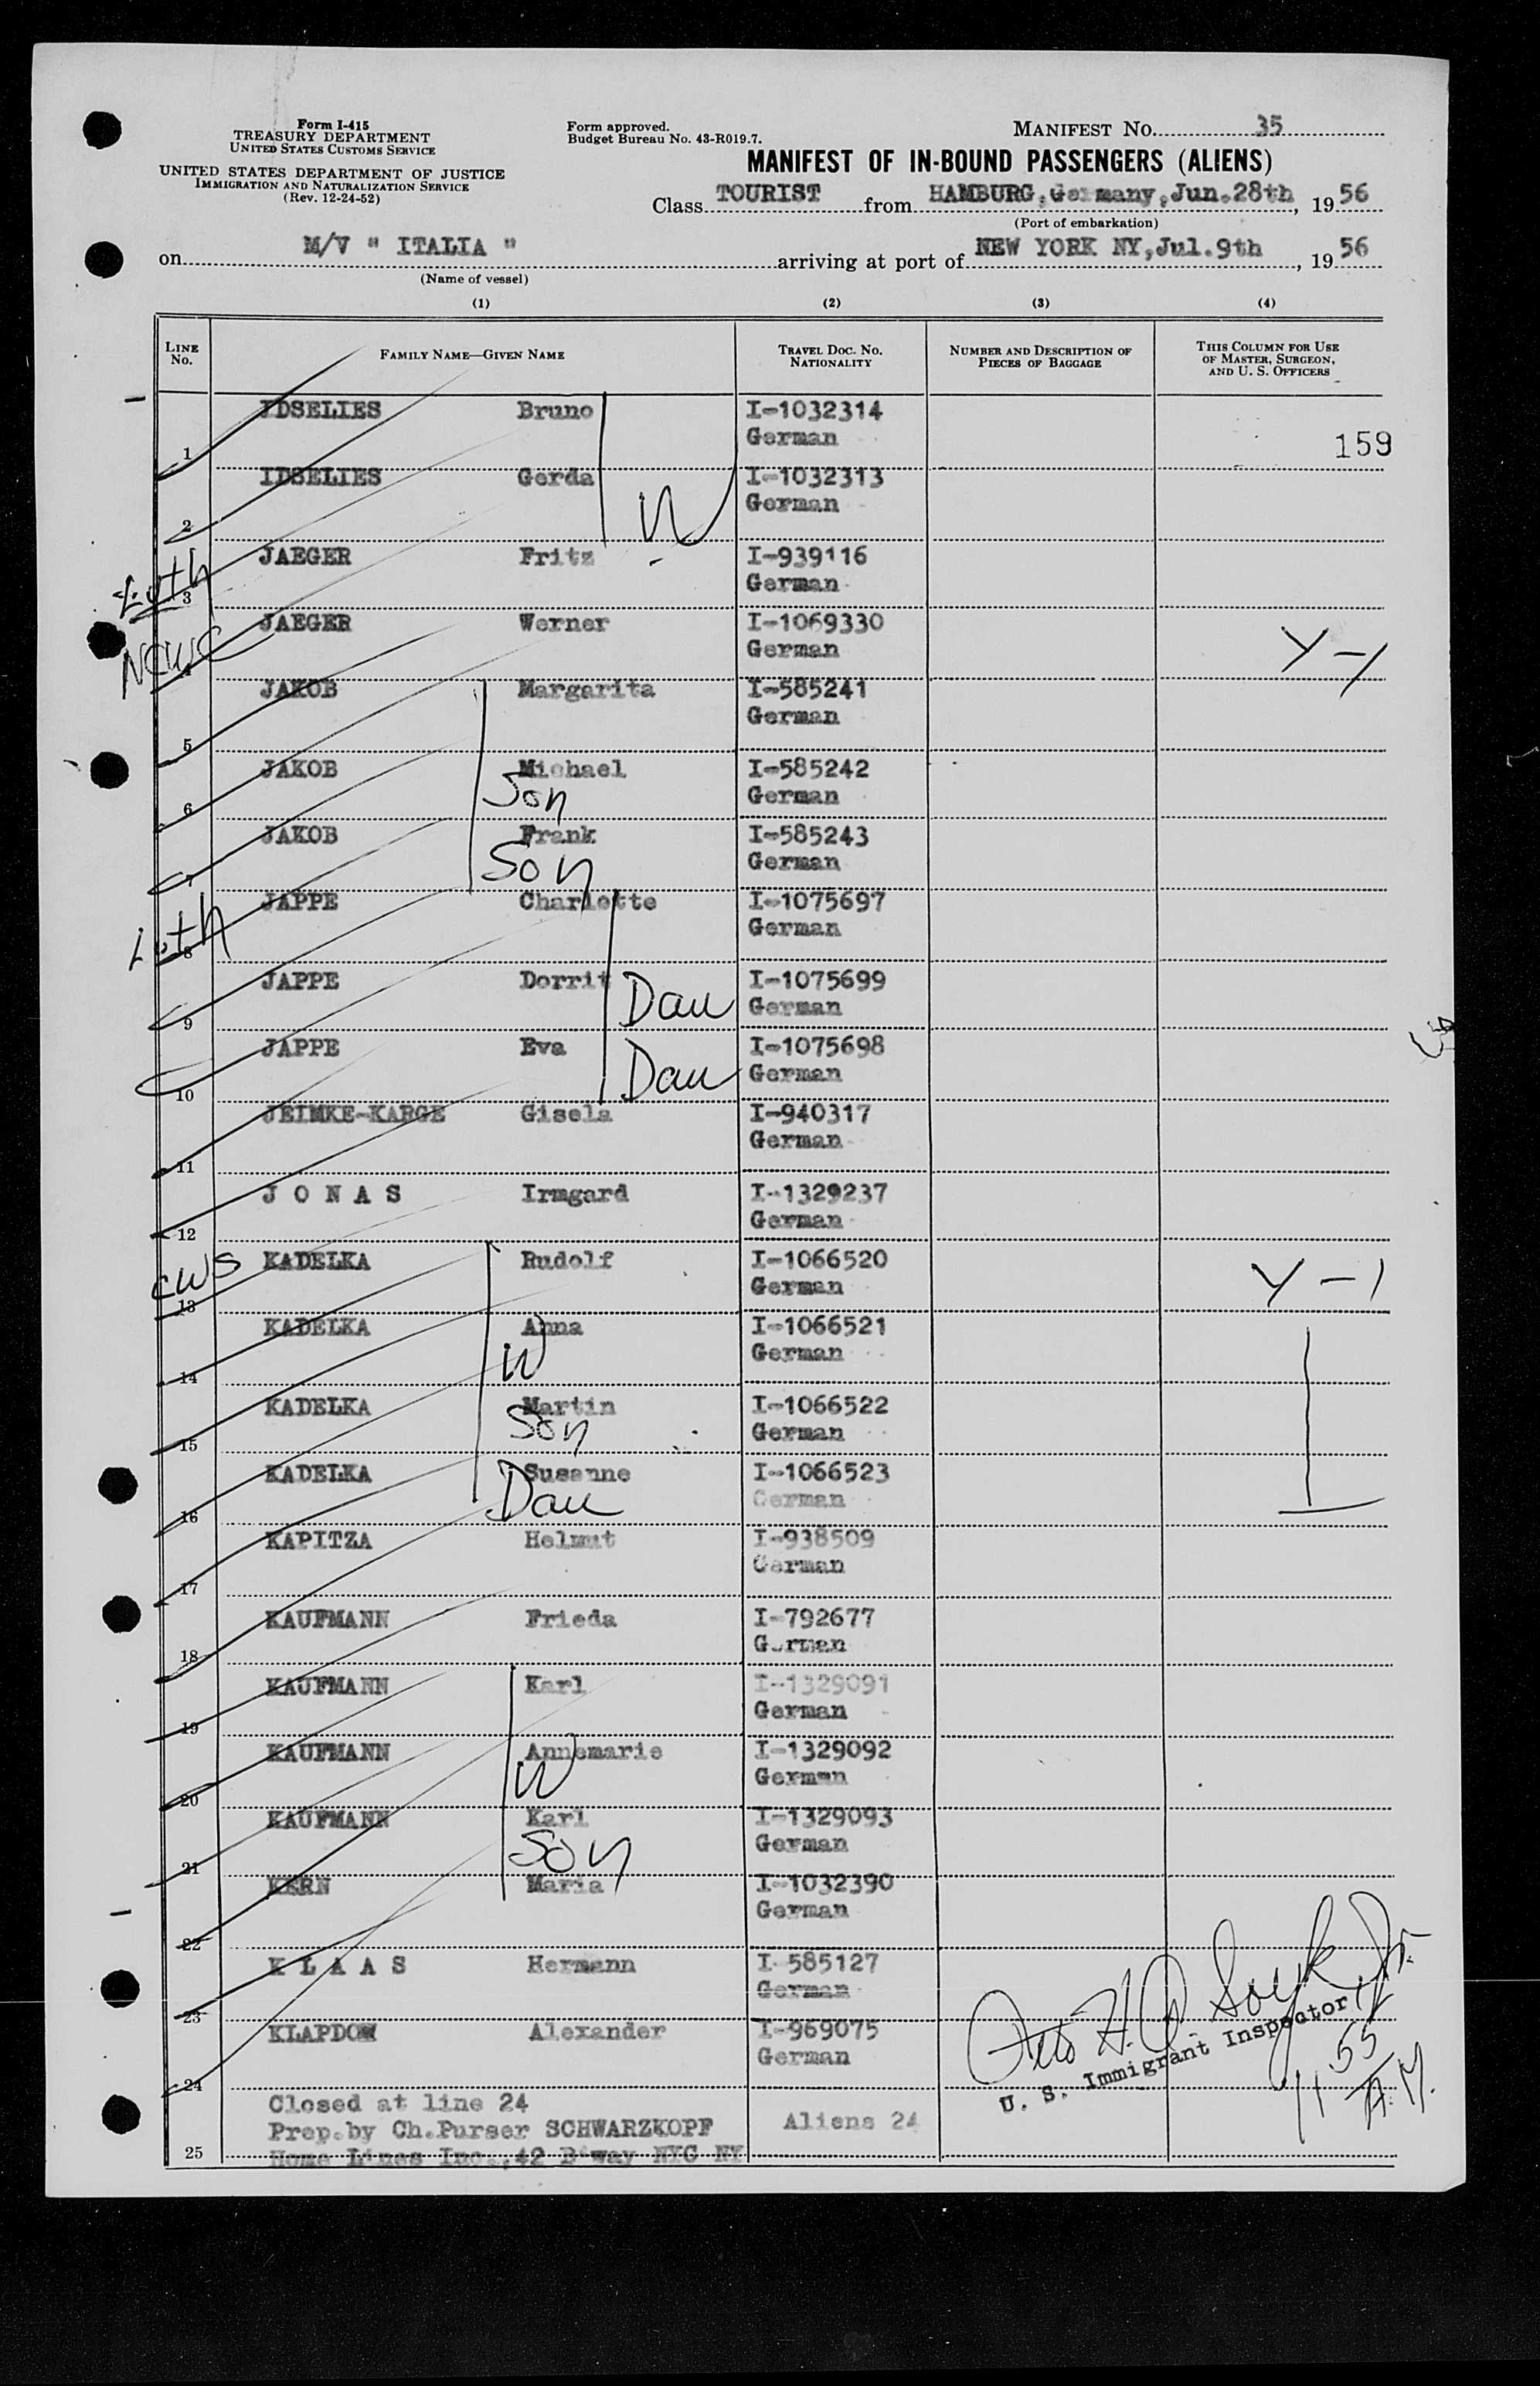 Form I-415
TREASURY DEPARTMENT
UNITED STATES CUSTOMS SERVICE
UNITED STATES DEPARTMENT OF JUSTICE
IMMIGRATION AND NATURALIZATION SERVICE
(Rev. 12-24-52)
Form approved.
Budget Bureau No. 43-R019.7.
MANIFEST NO. 35
MANIFEST OF IN-BOUND PASSENGERS (ALIENS)
Class TOURIST from HAMBURG, Germany, Jun.28th, 1956
(Port of embarkation)
on M/V " ITALIA " arriving at port of NEW YORK NY, Jul.9th, 1956
(Name of vessel)
(1) (2) (3) (4)
LINE No. FAMILY NAME—GIVEN NAME TRAVEL DOC. NO. NATIONALITY NUMBER AND DESCRIPTION OF PIECES OF BAGGAGE THIS COLUMN FOR USE OF MASTER, SURGEON, AND U. S. OFFICERS
1 IDSELIES Bruno I-1032314 German 159
2 IDSELIES Gerda W I-1032313 German
Luth 3 JAEGER Fritz I-939116 German
4 JAEGER Werner I-1069330 German Y-1
5 JAKOB Margarita I-585241 German
6 JAKOB Michael Son I-585242 German
7 JAKOB Frank Son I-585243 German
Luth 8 JAPPE Charlotte I-1075697 German
9 JAPPE Dorrit Dau I-1075699 German
10 JAPPE Eva Dau I-1075698 German
11 JEIMKE-KARGE Gisela I-940317 German
12 J O N A S Irmgard I-1329237 German
CWS 13 KADELKA Rudolf I-1066520 German Y-1
14 KADELKA Anna W I-1066521 German
15 KADELKA Martin Son I-1066522 German
16 KADELKA Susanne Dau I-1066523 German
17 KAPITZA Helmut I-938509 German
18 KAUFMANN Frieda I-792677 German
19 KAUFMANN Karl I-1329091 German
20 KAUFMANN Annemarie W I-1329092 German
21 KAUFMANN Karl Son I-1329093 German
22 KERN Maria I-1032390 German
23 K L A A S Hermann I-585127 German
24 KLAPDOW Alexander I-969075 German
U. S. Immigrant Inspector
11 55 A.M.
Closed at line 24
Prep.by Ch.Purser SCHWARZKOPF Aliens 24
25 Home Lines Inc.,42 B'way NYC NY